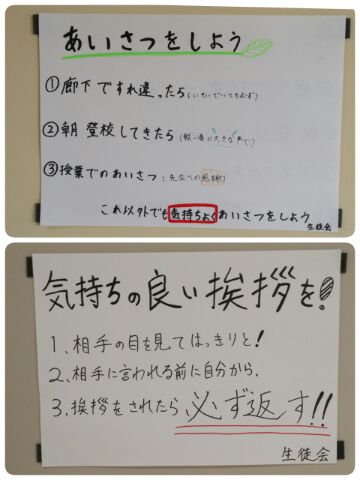 あいさつをしよう
①廊下ですれ違ったら
②朝登校してきたら(朝一番の大きな声で)
③授業でのあいさつ(先生への感謝)
これ以外でも気持ちよくあいさつをしよう
生徒会
気持ちの良い挨拶を!
1、相手の目を見てはっきりと!
2、相手に言われる前に自分から、
3、挨拶をされたら必ず返す!!
生徒会